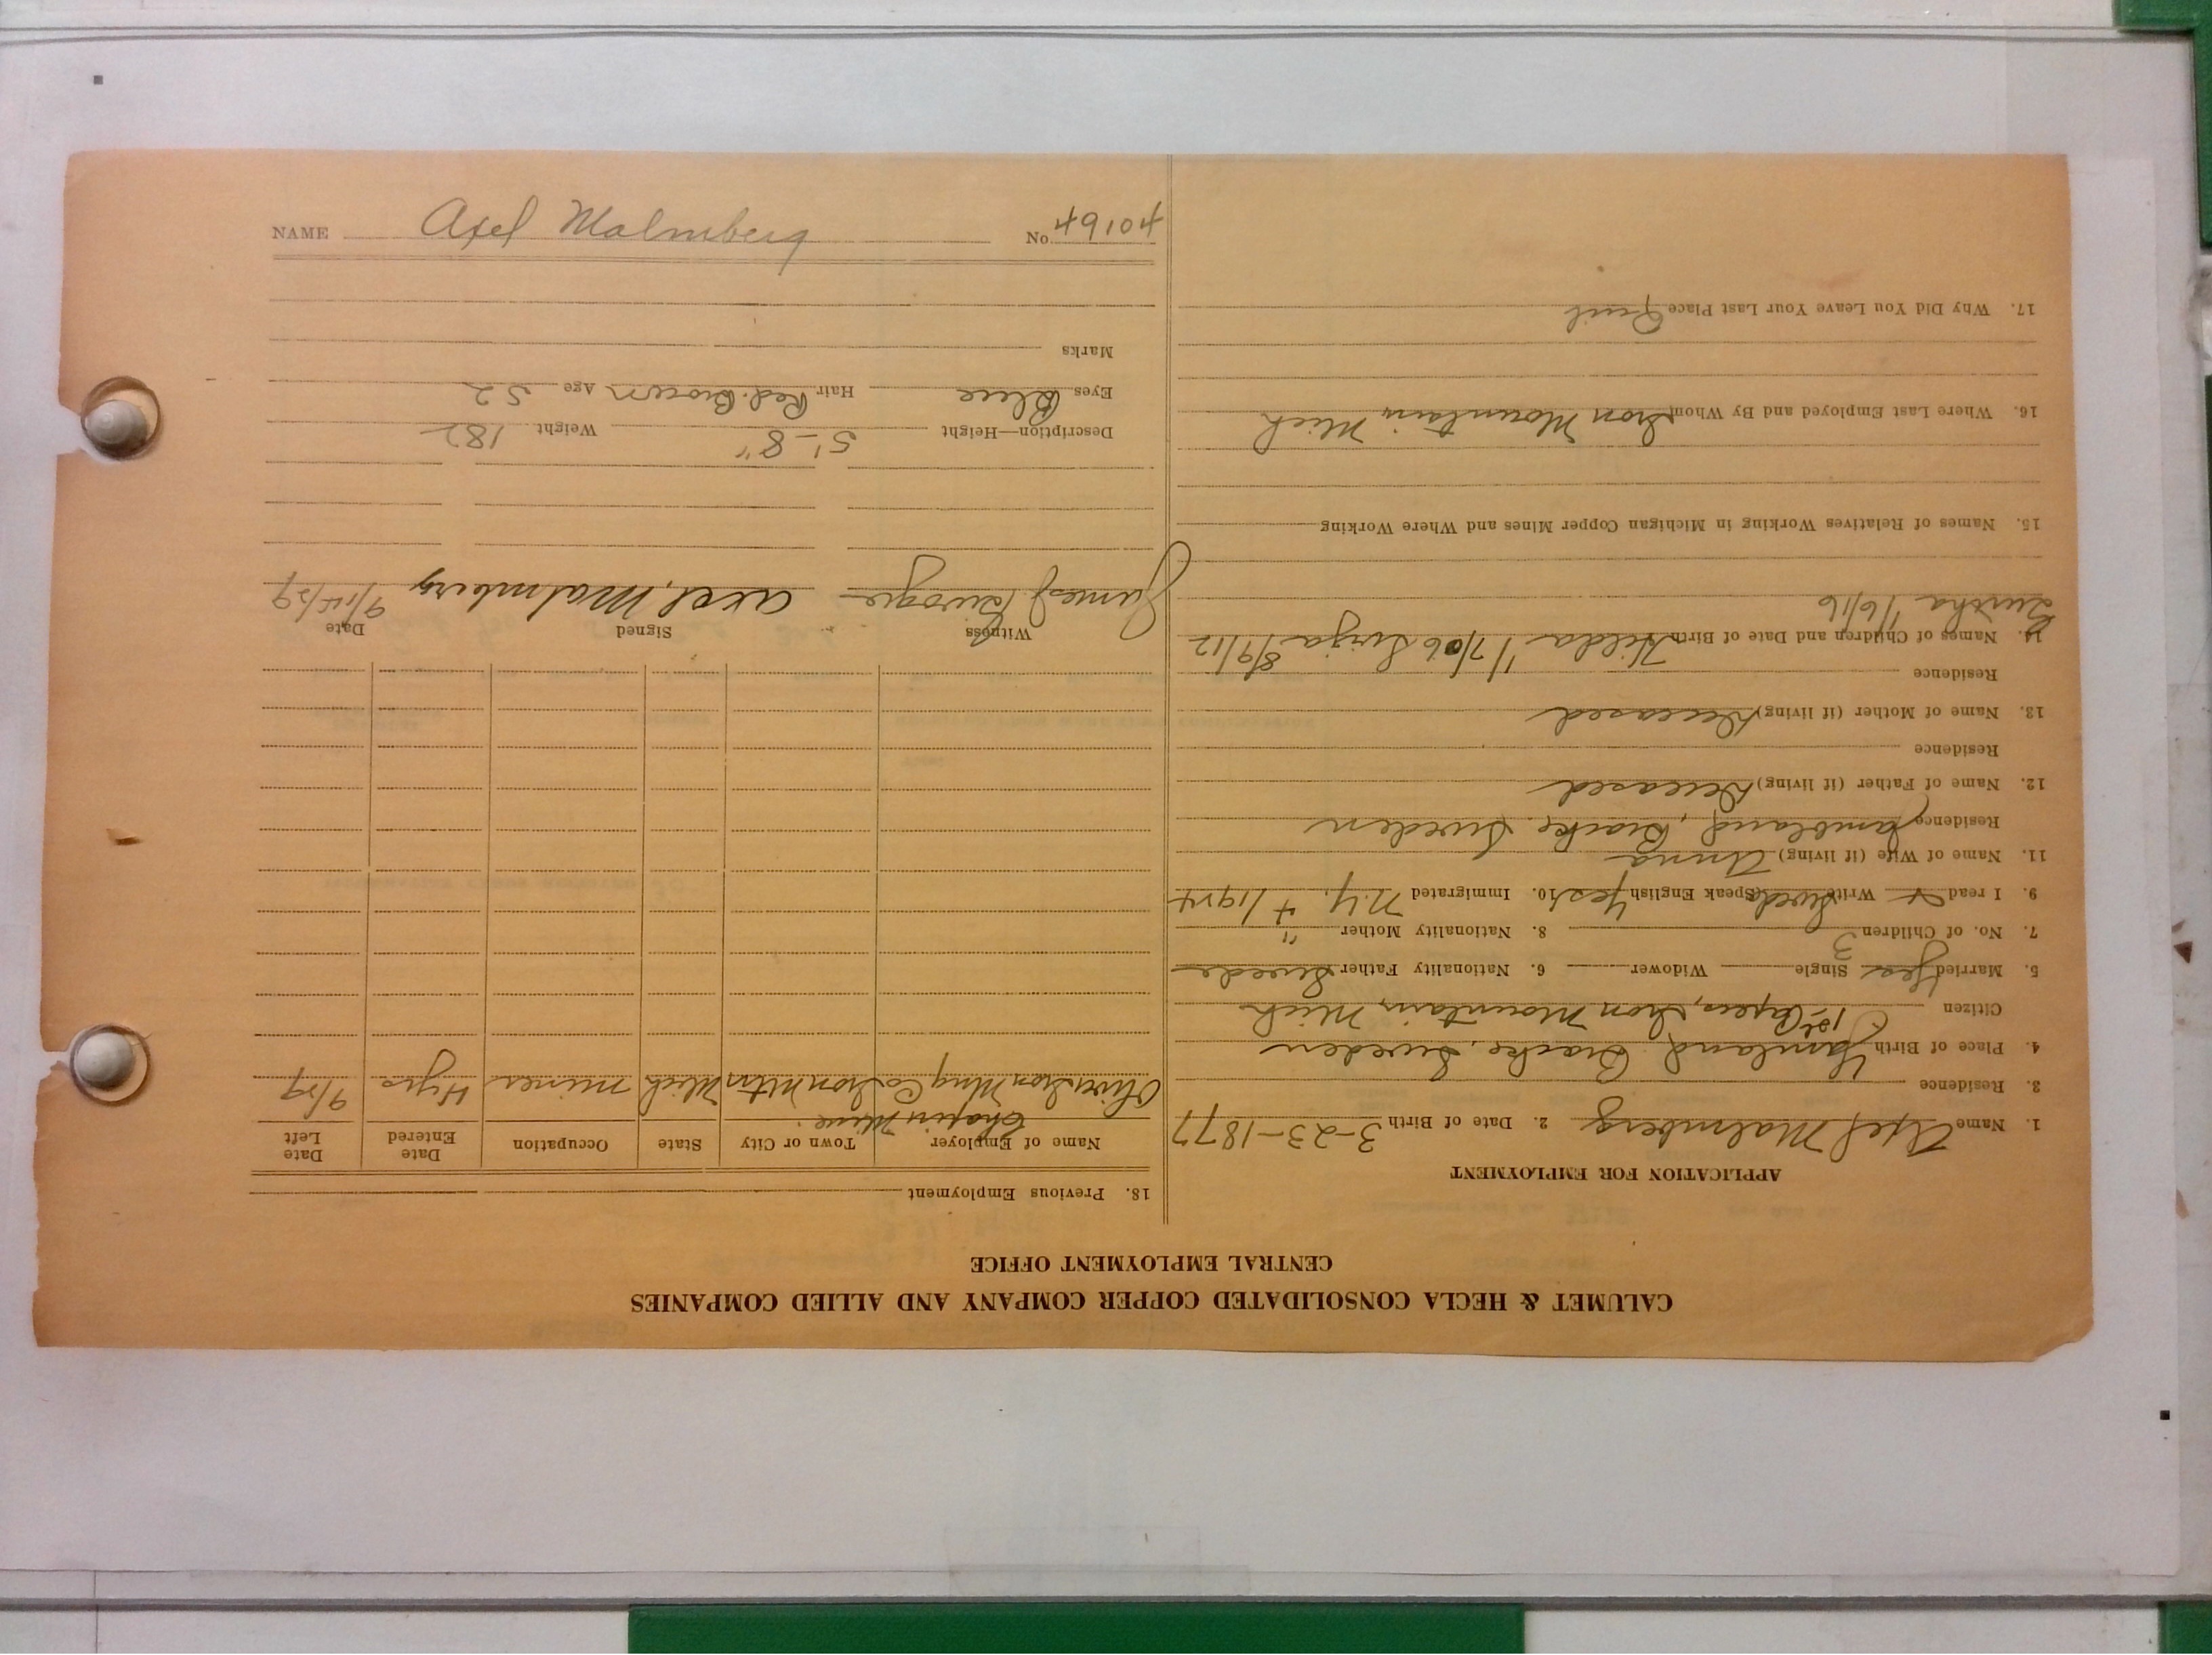 CALUMET & HECLA CONSOLIDATED COPPER COMPANY AND ALLIED COMPANIES
CENTRAL EMPLOYMENT OFFICE
APPLICATION FOR EMPLOYMENT
1. Name Axel Malmberg 2. Date of Birth 3-23-1877
3. Residence
4. Place of Birth Bracke, Sweden
Citizen 1st Papers, Iron Mountain, Mich
5. Married Yes Single Widower 6. Nationality Father Swede
7. No. of Children 3 8. Nationality Mother "
9. I read Write Swede Speak English Yes 10. Immigrated N.Y. 4/1924
11. Name of Wife (if living) Anna
Residence Jambland, Bracke, Sweden
12. Name of Father (if living) Deceased
Residence
13. Name of Mother (if living) Deceased
Residence
14. Names of Children and Date of Birth Hilda 1/7/06 8/9/12
1/6/16
15. Names of Relatives Working in Michigan Copper Mines and Where Working
16. Where Last Employed and By Whom Iron Mountain, Mich
17. Why Did You Leave Your Last Place Quit
18. Previous Employment
Name of Employer Town or City State Occupation Date Entered Date Left
Chapin Mine.
Oliver Iron Mng Co Iron Mtn Mich miner 4 yrs 9/29
Witness Signed Date
James J Axel, Malmberg 9/14/29
Description—Height 5'-8" Weight 182
Eyes Blue Hair Red. Brown Age 52
Marks
NAME Axel Malmberg No. 49104